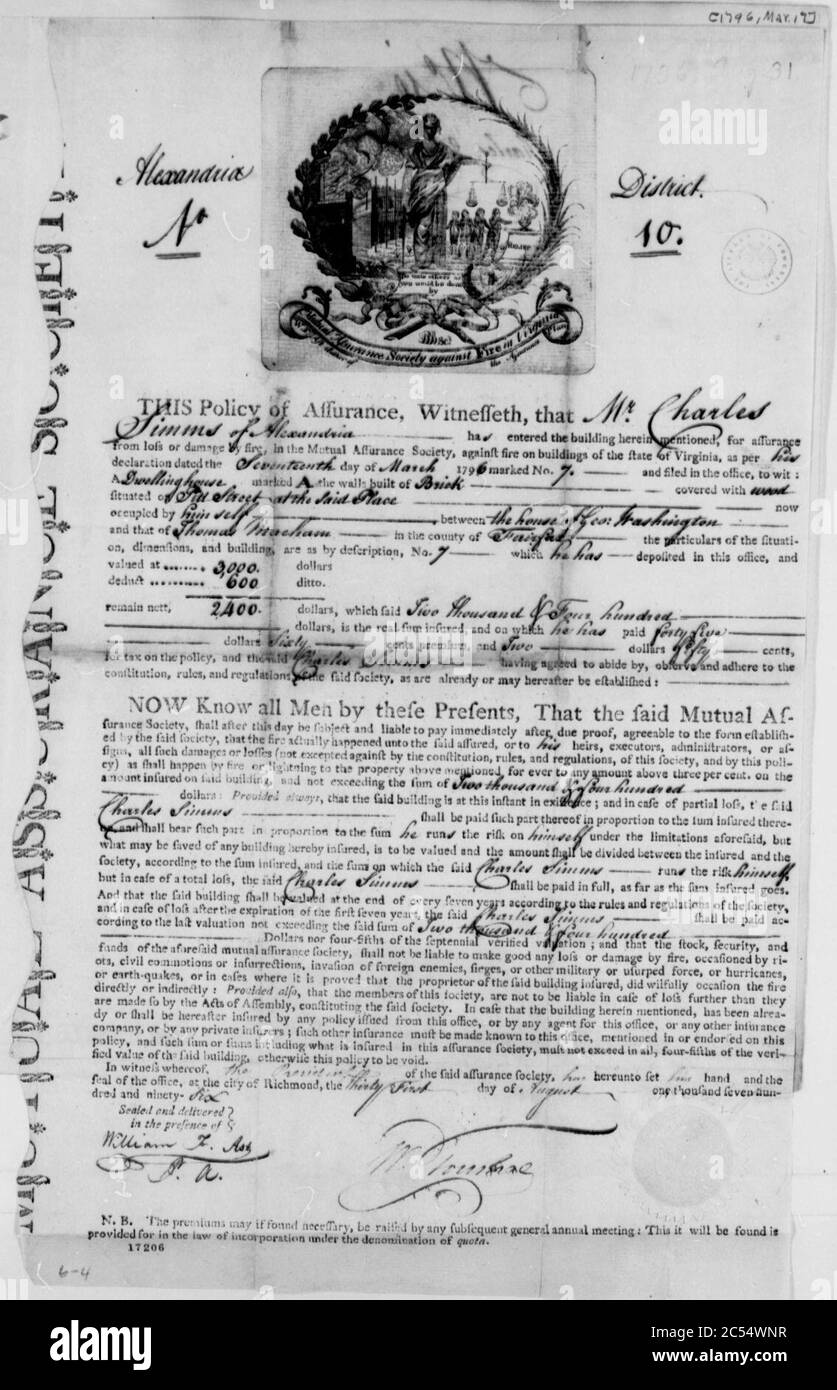 [1796, Mar. 17]
31
Alexandria
District.
No
10.
Mutual Assurance Society against Fire in Virginia
MUTUAL ASSURANCE SOCIETY
THIS Policy of Aſſurance, Witneſſeth, that Mr. Charles
Simms of Alexandria has entered the building herein mentioned, for aſſurance
from loſs or damage by fire, in the Mutual Aſſurance Society, againſt fire on buildings of the ſtate of Virginia, as per his
declaration dated the Seventeenth day of March 1796 marked No. 7. and filed in the office, to wit:
A Dwelling house marked A the walls built of Brick covered with wood
situated on Pitt Street at the said Place now
occupied by himself between the house of Geo: Washington
and that of Thomas in the county of Fairfax the particulars of the ſituati-
on, dimenſions, and building, are as by deſcription, No. 7 which he has depoſited in this office, and
valued at 3,000. dollars
deduct 600 ditto.
remain nett, 2400. dollars, which ſaid Two thousand & Four hundred
dollars, is the real ſum inſured, and on which he has paid forty five
dollars Sixty cents premium, and Two dollars fifty cents,
for tax on the policy, and the ſaid Charles having agreed to abide by, obſerve and adhere to the
conſtitution, rules, and regulations of the ſaid ſociety, as are already or may hereafter be eſtabliſhed:
NOW Know all Men by theſe Preſents, That the ſaid Mutual Aſ-
ſurance Society, ſhall after this day be ſubject and liable to pay immediately after due proof, agreeable to the form eſtabliſh-
ed by the ſaid ſociety, that the fire actually happened unto the ſaid aſſured, or to his heirs, executors, adminiſtrators, or aſ-
ſigns, all ſuch damages or loſſes (not excepted againſt by the conſtitution, rules, and regulations, of this ſociety, and by this poli-
cy) as ſhall happen by fire or lightning to the property above mentioned, for ever to any amount above three per cent. on the
amount inſured on ſaid building, and not exceeding the ſum of Two thousand & four hundred
dollars: Provided always, that the ſaid building is at this inſtant in exiſtence; and in caſe of partial loſs, the ſaid
Charles Simms ſhall be paid ſuch part thereof in proportion to the ſum inſured there-
on, and ſhall bear ſuch part in proportion to the ſum he runs the riſk on himself under the limitations aforeſaid, but
what may be ſaved of any building hereby inſured, is to be valued and the amount ſhall be divided between the inſured and the
ſociety, according to the ſum inſured, and the ſum on which the ſaid Charles Simms runs the riſk himself.
but in caſe of a total loſs, the ſaid Charles Simms ſhall be paid in full, as far as the ſum inſured goes.
And that the ſaid building ſhall be valued at the end of every ſeven years according to the rules and regulations of the ſociety,
and in caſe of loſs after the expiration of the firſt ſeven years, the ſaid Charles Simms ſhall be paid ac-
cording to the laſt valuation not exceeding the ſaid ſum of Two thousand & four hundred
Dollars nor four-fifths of the ſeptennial verified valuation; and that the ſtock, ſecurity, and
funds of the aforeſaid mutual aſſurance ſociety, ſhall not be liable to make good any loſs or damage by fire, occaſioned by ri-
ots, civil commotions or inſurrections, invaſion of foreign enemies, ſieges, or other military or uſurped force, or hurricanes,
or earth-quakes, or in caſes where it is proved that the proprietor of the ſaid building inſured, did wilfully occaſion the fire
directly or indirectly: Provided alſo, that the members of this ſociety, are not to be liable in caſe of loſs further than they
are made ſo by the Acts of Aſſembly, conſtituting the ſaid ſociety. In caſe that the building herein mentioned, has been alrea-
dy or ſhall be hereafter inſured by any policy iſſued from this office, or by any agent for this office, or any other inſurance
company, or by any private inſurers; ſuch other inſurance muſt be made known to this office, mentioned in or endorſed on this
policy, and ſuch ſum or ſums including what is inſured in this aſſurance ſociety, muſt not exceed in all, four-fifths of the veri-
fied value of the ſaid building, otherwiſe this policy to be void.
In witneſs whereof, the President of the ſaid aſſurance ſociety, has hereunto ſet his hand and the
ſeal of the office, at the city of Richmond, the thirty First day of August one thouſand ſeven hun-
dred and ninety-six
Sealed and delivered
in the preſence of
William F. Ast
P. A.
N. B. The premiums may if found neceſſary, be raiſed by any ſubſequent general annual meeting: This it will be found is
provided for in the law of incorporation under the denomination of quota.
17206
6-4
alamy
Image ID: 2C54WNR
www.alamy.com